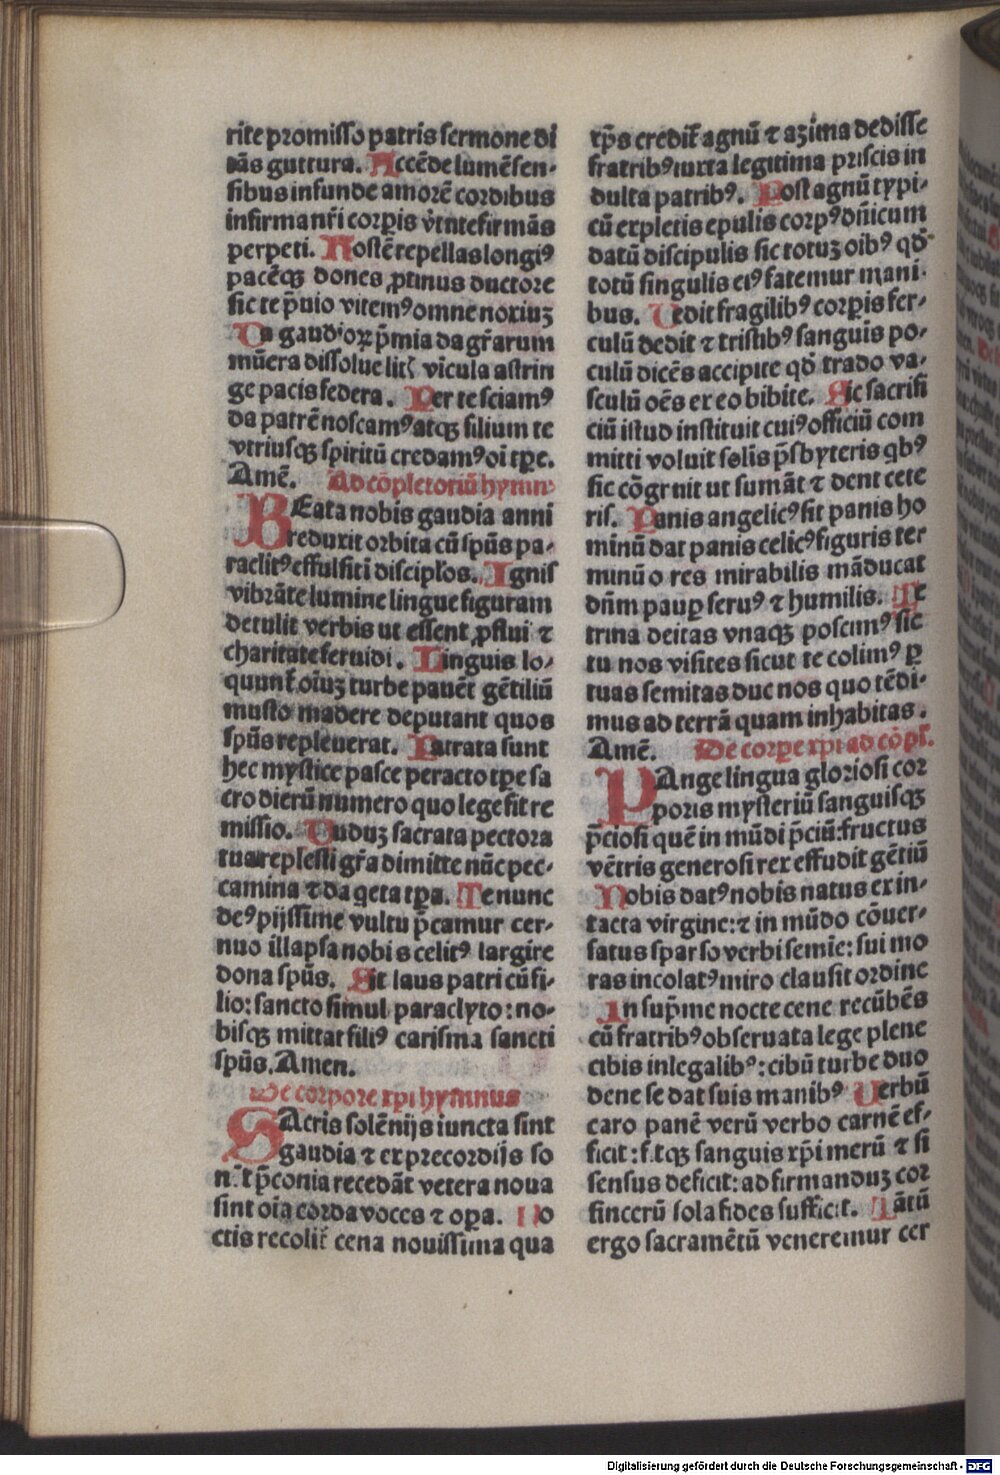 rite promisso patris sermone di
tās guttura. Accēde lumē sen-
sibus infunde amorē cordibus
infirma nr̄i corꝑis v̓tute firmās
perpeti. Hostē repellas longiꝰ
pacēqꝫ dones ꝓtinus ductore
sic te p̄uio vitemꝰ omne noxiuꝫ
Da gaudioꝝ p̄mia da gr̄arum
mūera dissolue litꝭ vīcula astrin
ge pacis federa. Per te sciamꝰ
da patrē noscamꝰ atqꝫ filium te
vtriusqꝫ spiritū credamꝰ oī tꝑe.
Amē. Ad cōpletoriū hymnꝰ
BEata nobis gaudia anni
reduxit orbita cū spūs pa-
raclitꝰ effulsit ī discipl̓os. Ignis
vibrāte lumine lingue figuram
detulit verbis ut essent ꝓflui ⁊
charitate feruidi. Linguis lo-
quunt̄ oīuꝫ turbe pauēt gētiliū
musto madere deputant quos
spūs repleuerat. Patrata sunt
hec mystice pasce peracto tꝑe sa
cro dierū numero quo lege fit re
missio. Duduꝫ sacrata pectora
tua replesti gr̄a dimitte nūc pec-
camina ⁊ da qeta tꝑa. Te nunc
deꝰ pijssime vultu p̄camur cer-
nuo illapsa nobis celitꝰ largire
dona spūs. Sit laus patri cū fi-
lio: sancto simul paraclyto: no-
bisqꝫ mittat filiꝰ carisma sancti
spūs. Amen.
De corpore xp̄i hymnus
SAcris solēnijs iuncta sint
gaudia ⁊ ex precordijs so
nēt p̄conia recedāt vetera noua
sint oīa corda voces ⁊ oꝑa. No
ctis recolit̄ cena nouissima qua
xp̄s credit̄ agnū ⁊ azima dedisse
fratribꝰ iuxta legitima priscis in
dulta patribꝰ. Post agnū typi-
cū expletis epulis corpꝰ dn̄icum
datū discipulis sic totuꝫ oibꝰ qd̓
totū singulis eiꝰ fatemur mani-
bus. Dedit fragilibꝰ corꝑis fer-
culū dedit ⁊ tristibꝰ sanguis po-
culū dicēs accipite qd̓ trado va-
sculū oēs ex eo bibite. Sic sacrifi
ciū istud instituit cuiꝰ officiū com
mitti voluit solis p̄sbyteris qbꝰ
sic cōgruit ut sumāt ⁊ dent cete
ris. Panis angelicꝰ fit panis ho
minū dat panis celicꝰ figuris ter
minū o res mirabilis māducat
dn̄m pauꝑ seruꝰ ⁊ humilis. Te
trina deitas vnaqꝫ poscimꝰ sic
tu nos visites sicut te colimꝰ ꝑ
tuas semitas duc nos quo tēdi-
mus ad terrā quam inhabitas.
Amē. De corꝑe xp̄i ad cōpl̓.
PAnge lingua gloriosi cor
poris mysteriū sanguisqꝫ
p̄ciosi quē in mūdi p̄ciū: fructus
vētris generosi rex effudit gētiū
Nobis datꝰ nobis natus ex in-
tacta virgine: ⁊ in mūdo cōuer-
satus sparso verbi semīe: sui mo
ras incolatꝰ miro clausit ordine
In sup̄me nocte cene recūbēs
cū fratribꝰ obseruata lege plene
cibis in legalibꝰ: cibū turbe duo
dene se dat suis manibꝰ Verbū
caro panē verū verbo carnē ef-
ficit: fitqꝫ sanguis xp̄i merū ⁊ si
sensus deficit: ad firmanduꝫ cor
sincerū sola fides sufficit. Tātū
ergo sacramētū veneremur cer
Digitalisierung gefördert durch die Deutsche Forschungsgemeinschaft - DFG